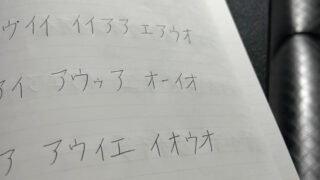 ヴイイ イイアア エアウオ
アイ アウゥア オーイオ
ア アウイエ イオウオ